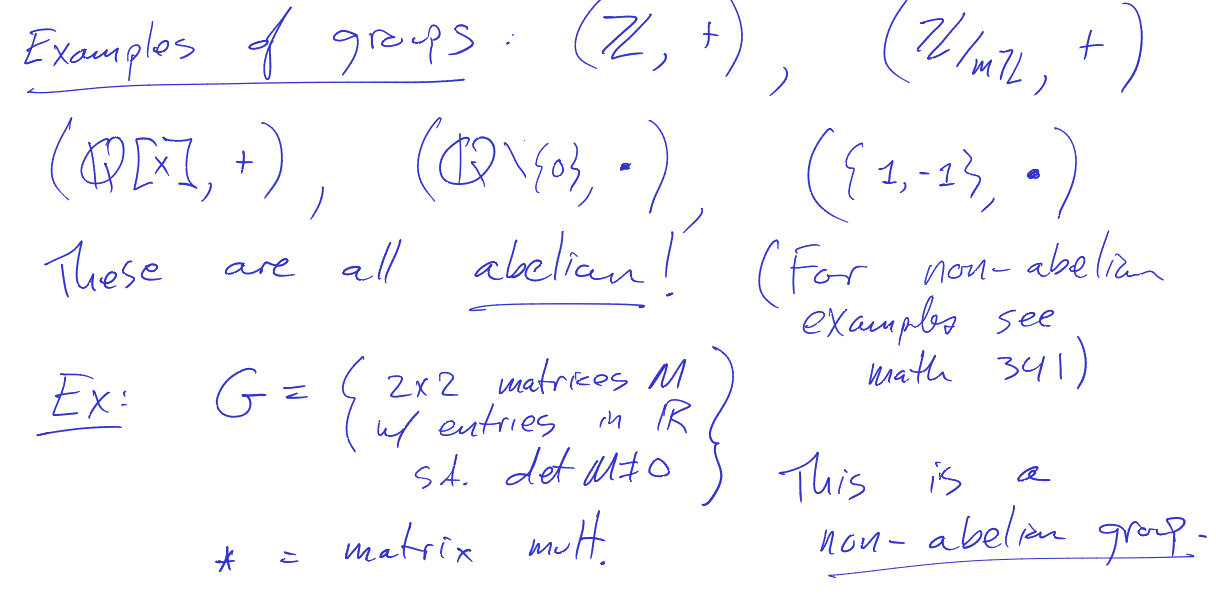 Examples of groups: (ℤ, +), (ℤ/mℤ, +)
(ℚ[x], +), (ℚ\{0}, •), ({1,-1}, •)
These are all abelian! (For non-abelian
examples see
math 341)
Ex: G = { 2x2 matrices M
w/ entries in ℝ
s.t. det M≠0 }
This is a
* = matrix mult.
non-abelian group.